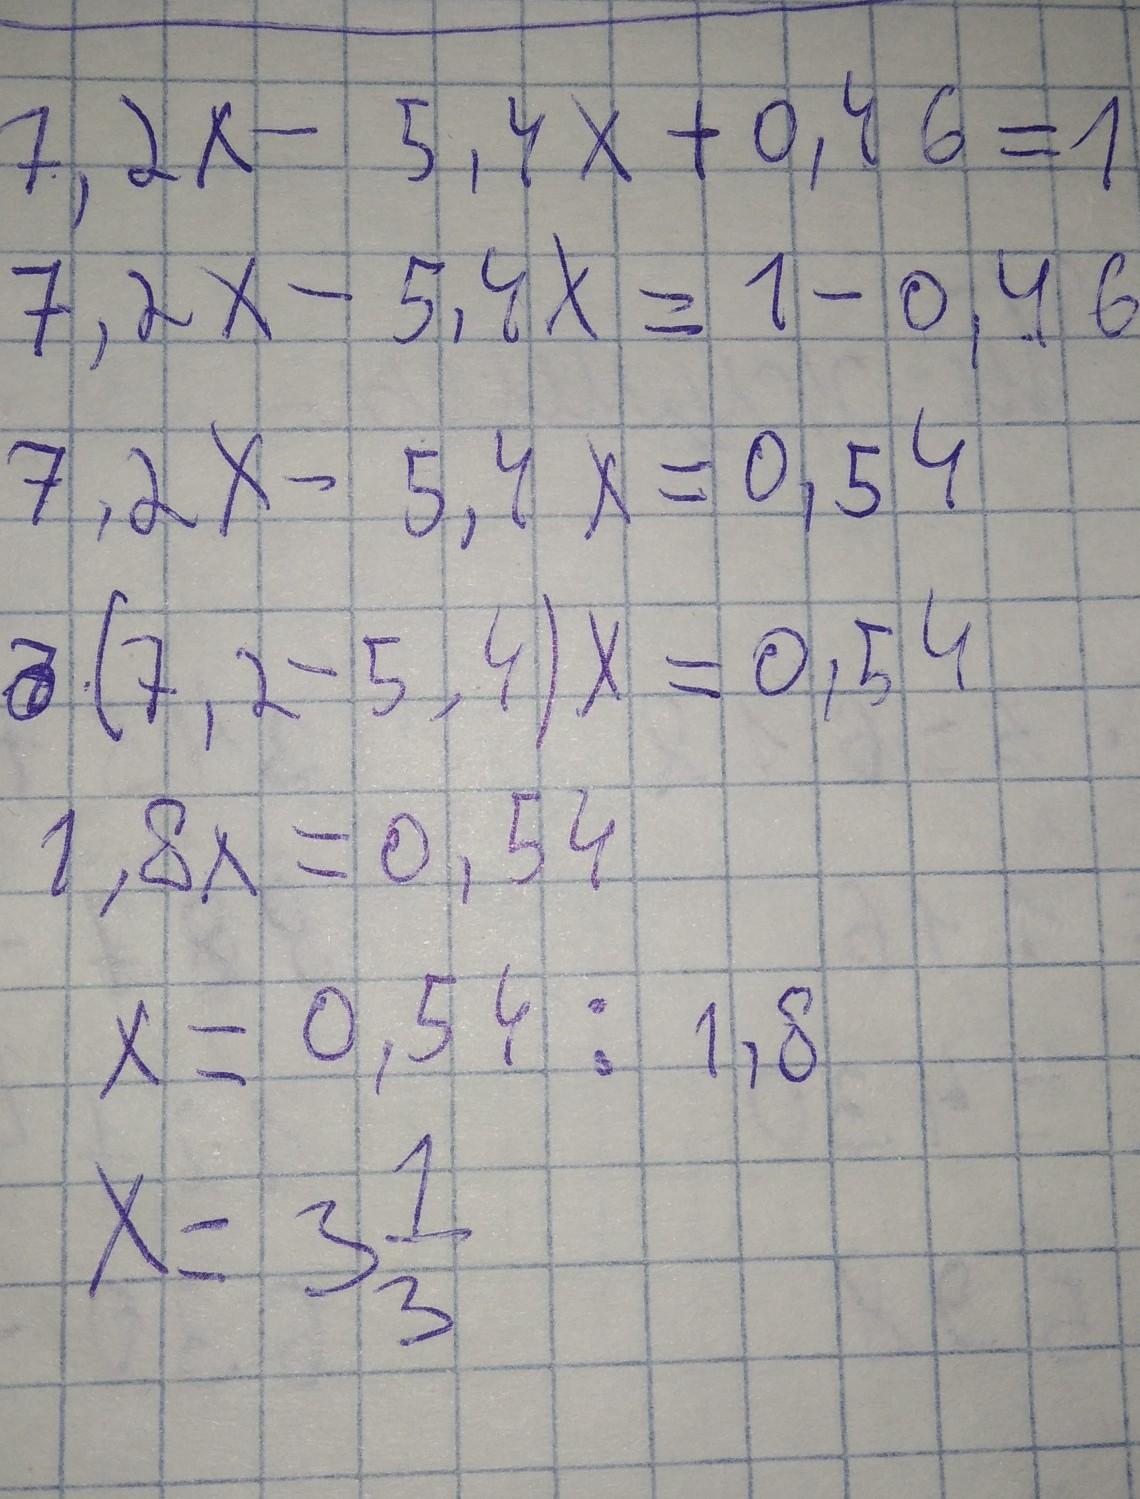 7,2x - 5,4x + 0,46 = 1
7,2x - 5,4x = 1 - 0,46
7,2x - 5,4x = 0,54
(7,2 - 5,4)x = 0,54
1,8x = 0,54
x = 0,54 : 1,8
x = 3 1/3